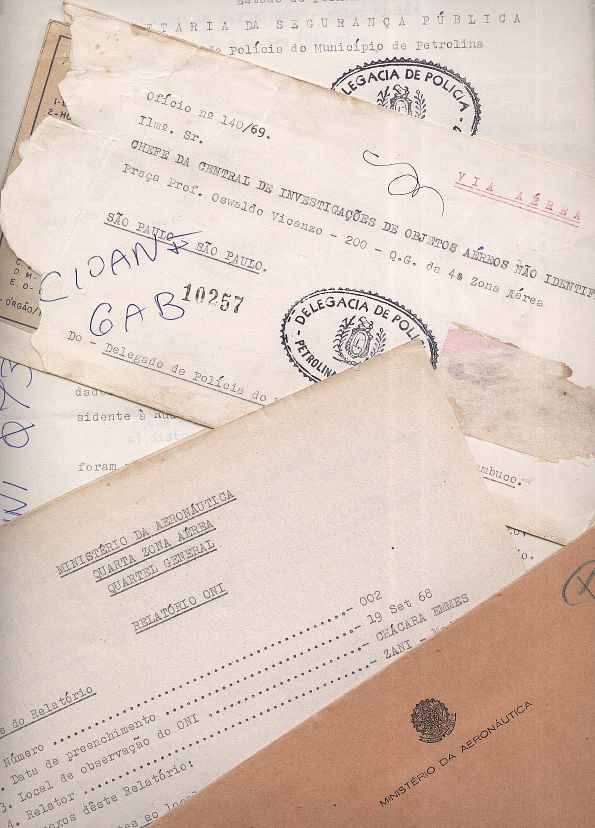 SEGURANÇA PÚBLICA
Polícia do Município de Petrolina
DELEGACIA DE POLICIA
Ofício nº 140/69.
Ilmº. Sr.
CHEFE DA CENTRAL DE INVESTIGAÇÕES DE OBJETOS AÉREOS NÃO IDENTIF
Praça Prof. Oswaldo Vicenzo - 200 - Q.G. da 4ª Zona Aérea
SÃO PAULO - SÃO PAULO.
VIA AÉREA
CIOANI
GAB
10257
DELEGACIA DE POLIC
PETROLINA
Do - Delegado de Polícia do
sidente à Rua
c) dist
foram
mbuco.
MINISTÉRIO DA AERONÁUTICA
QUARTA ZONA AÉREA
QUARTEL GENERAL
RELATÓRIO ONI
s do Relatório
Número - 002
. Data de preenchimento - 19 Set 68
3. Local de observação do ONI - CHÁCARA EMMES
4. Relator - ZANI - M
exos dêste Relatório:
es ao local
MINISTÉRIO DA AERONÁUTICA